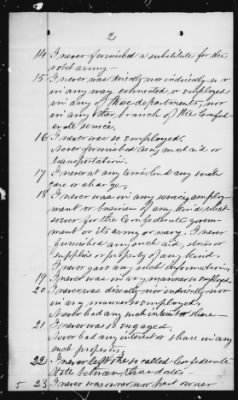 2
14 I never furnished a substitute for the
rebel army —
15 I never was directly nor indirectly nor
in any way connected or employed
in any of those departments, nor
in any other branch of the Confed-
erate service.
16 I never was so employed.
Never furnished any such aid or
transportation.
17 I never at any time had any such
care or charge.
18 I never was in any service, employ-
ment or business of any kind, what-
soever, for the Confederate govern-
ment or its army or navy. I never
furnished any such aid, stores or
supplies or property of any kind.
I never gave any such information.
19 I never was in any manner so employed.
20 I never was directly nor indirectly nor
in any manner so employed.
Never had any such interest or share —
21 I never was so engaged.
Never had any interest or share in any
such property.
22 I never left the so called Confederate
State between these dates.
5 23 I never was owner nor part owner